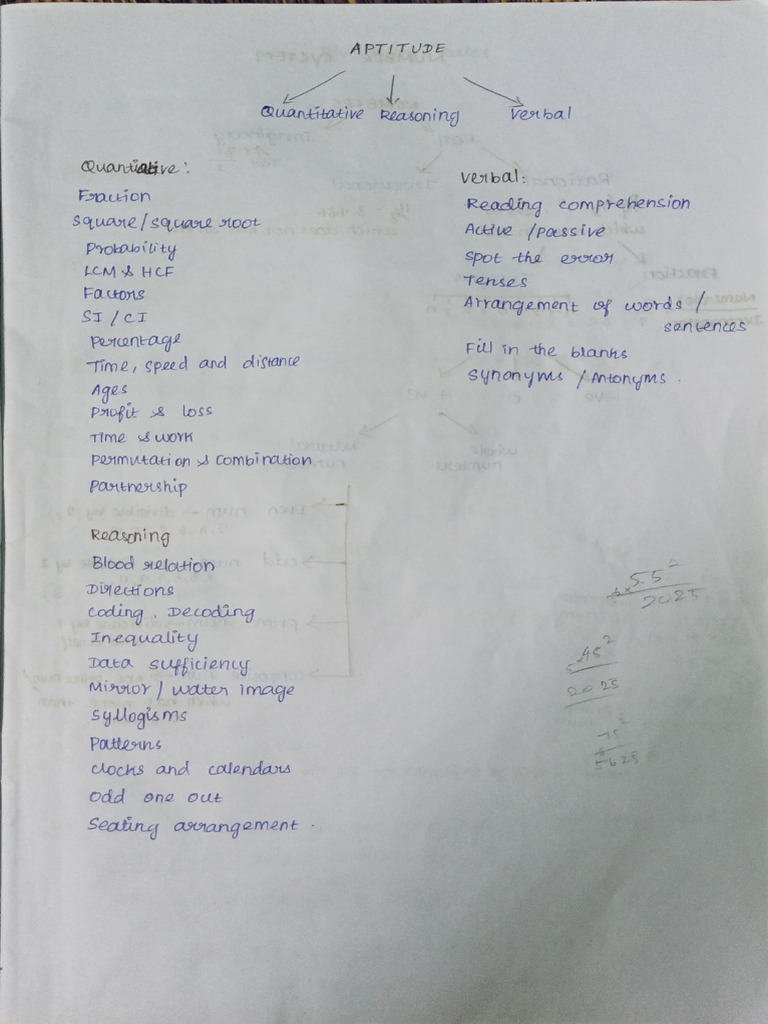 APTITUDE
Quantitative Reasoning Verbal
Quantitative:
Fraction
Square/square root
Probability
LCM & HCF
Factors
SI / CI
Percentage
Time, speed and distance
Ages
Profit & loss
Time & work
Permutation & Combination
Partnership
Reasoning
Blood relation
Directions
Coding. Decoding
Inequality
Data sufficiency
Mirror / water image
Syllogisms
Patterns
Clocks and calendars
Odd one out
Seating arrangement.
Verbal:
Reading comprehension
Active /Passive
Spot the error
Tenses
Arrangement of words /
sentences
Fill in the blanks
Synonyms / Antonyms.
55²
2025
45²
2025
75²
5625